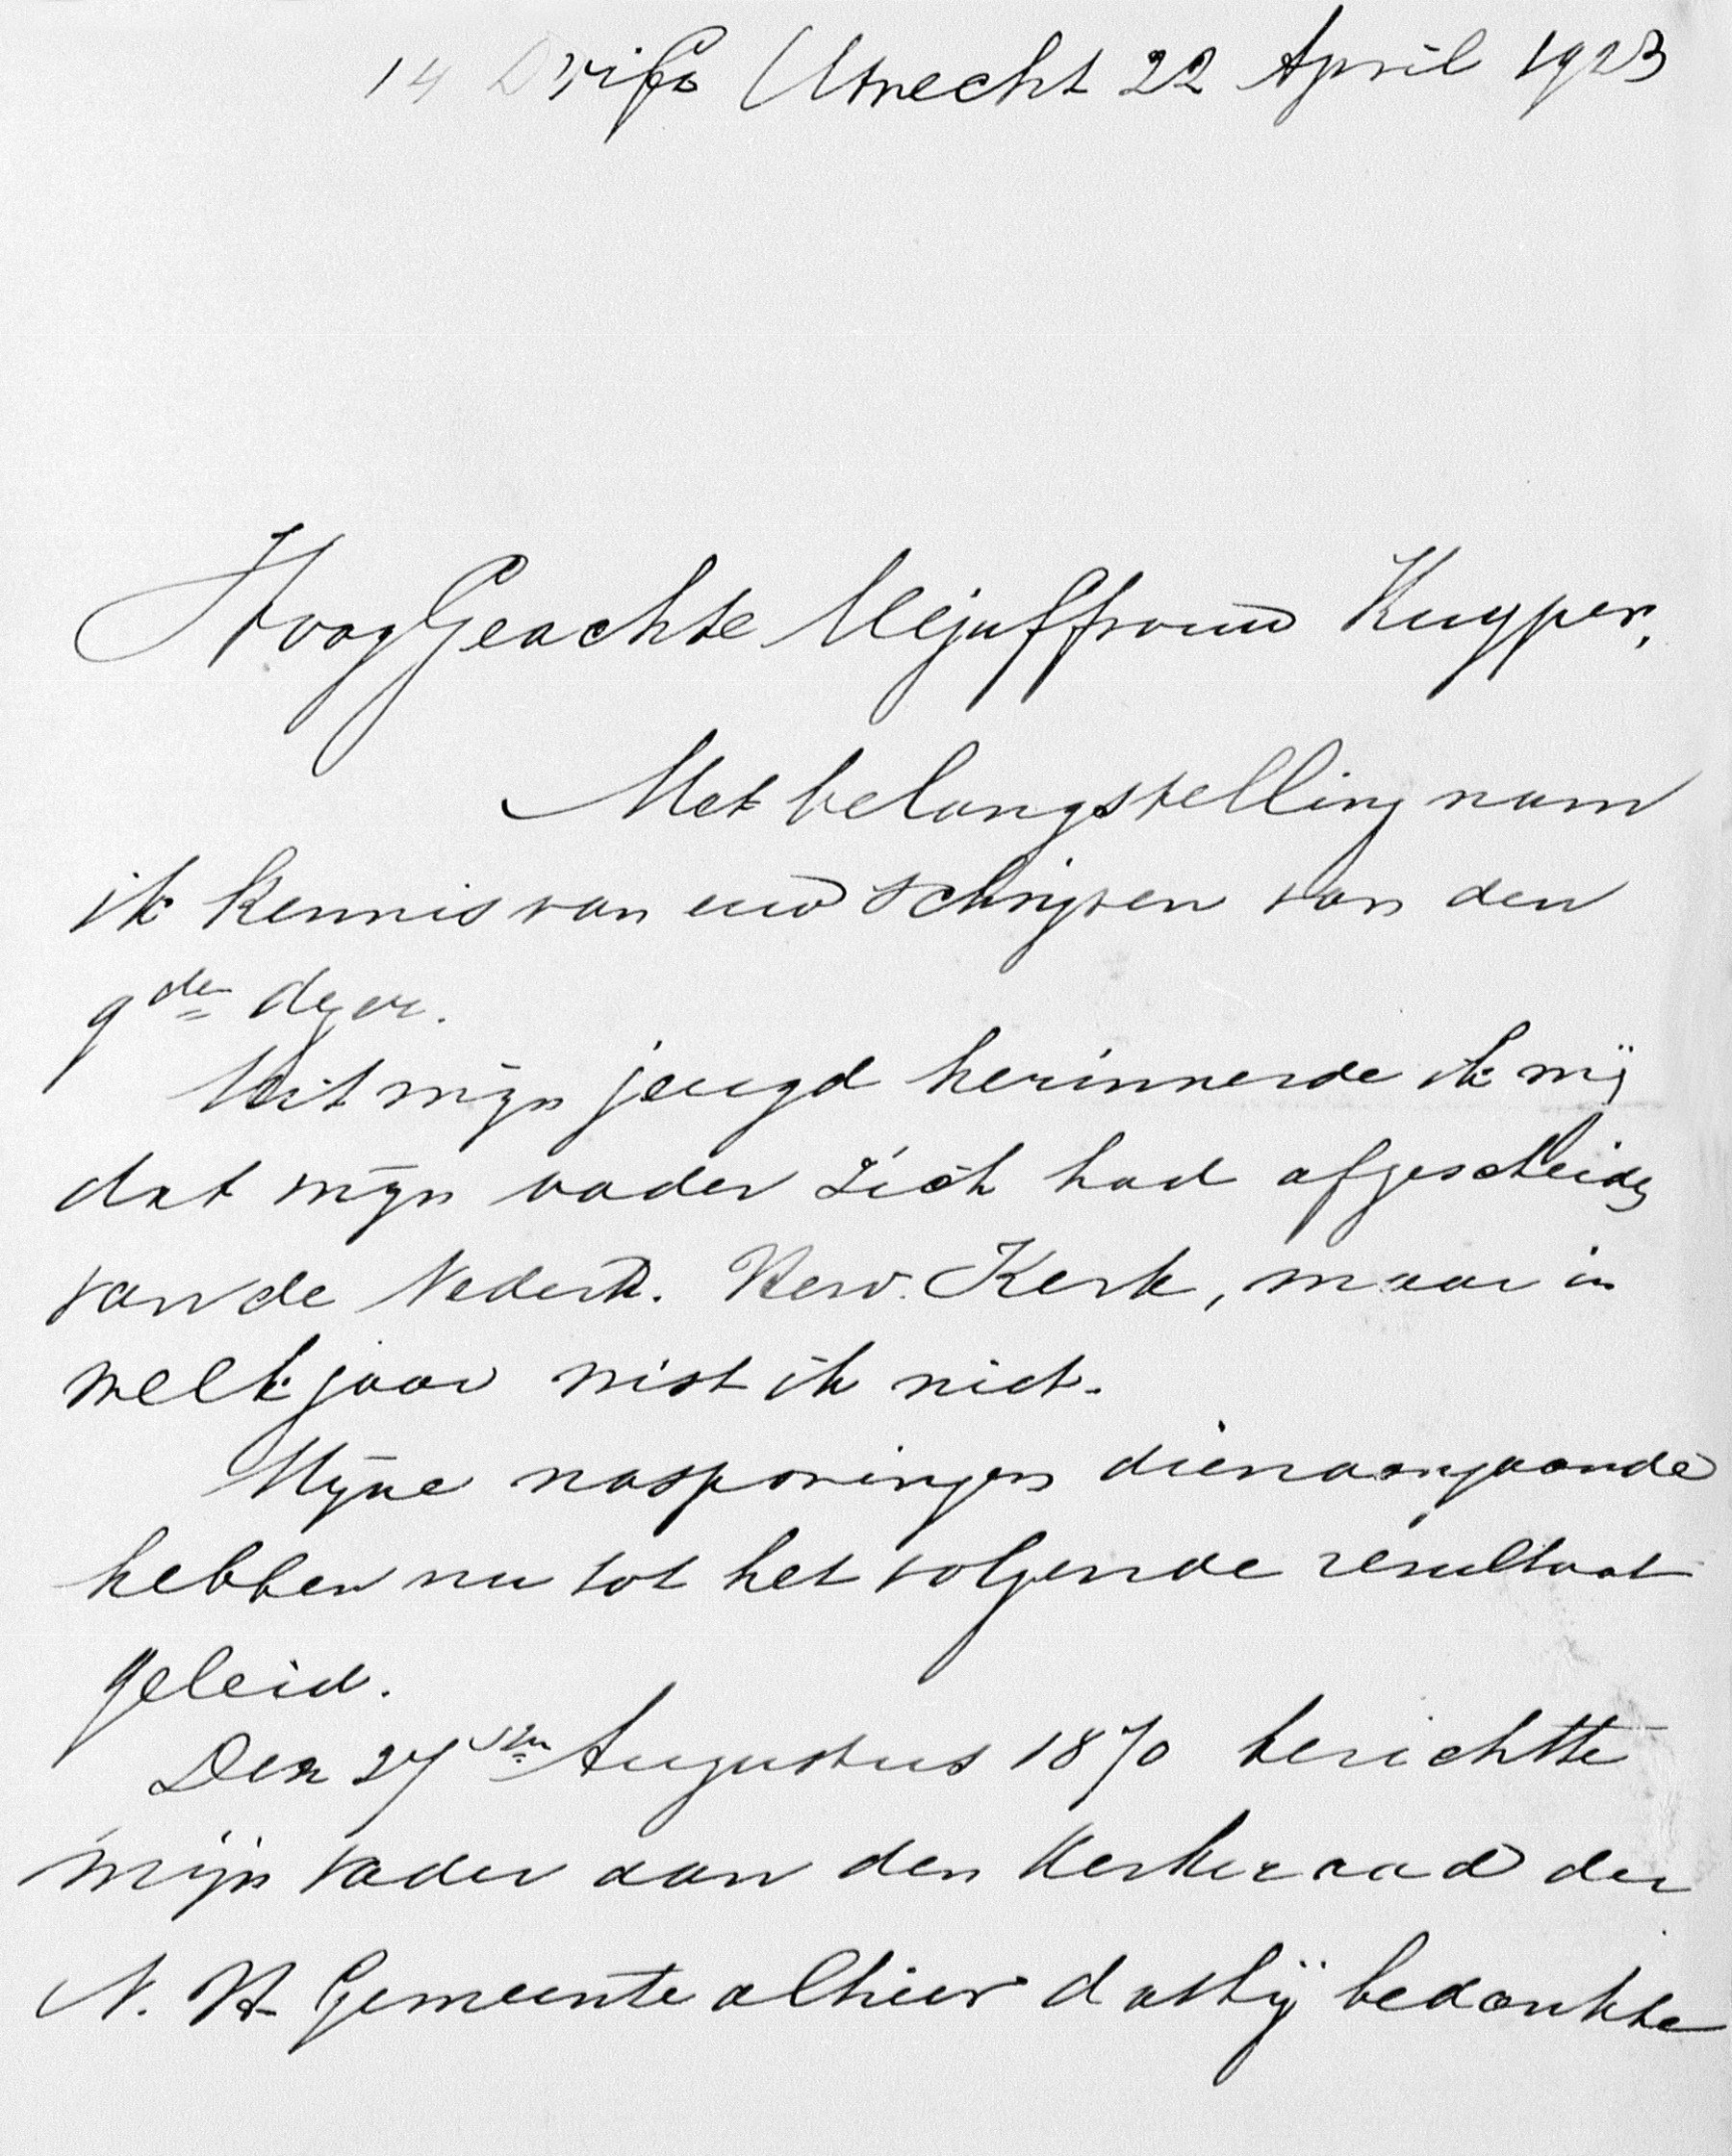 14 Drift Utrecht 22 April 1923
HoogGeachte Mejuffrouw Kuyper,
Met belangstelling nam
ik kennis van uw schrijven van den
9den dezer.
Uit mijn jeugd herinnerde ik mij
dat mijn vader zich had afgescheiden
van de Nederl. Herv. Kerk, maar in
welk jaar wist ik niet.
Mijne nasporingen dienaangaande
hebben nu tot het volgende resultaat
geleid.
Den 27sten Augustus 1870 berichtte
mijn vader aan den Kerkeraad der
N. H. Gemeente alhier dat hij bedankte